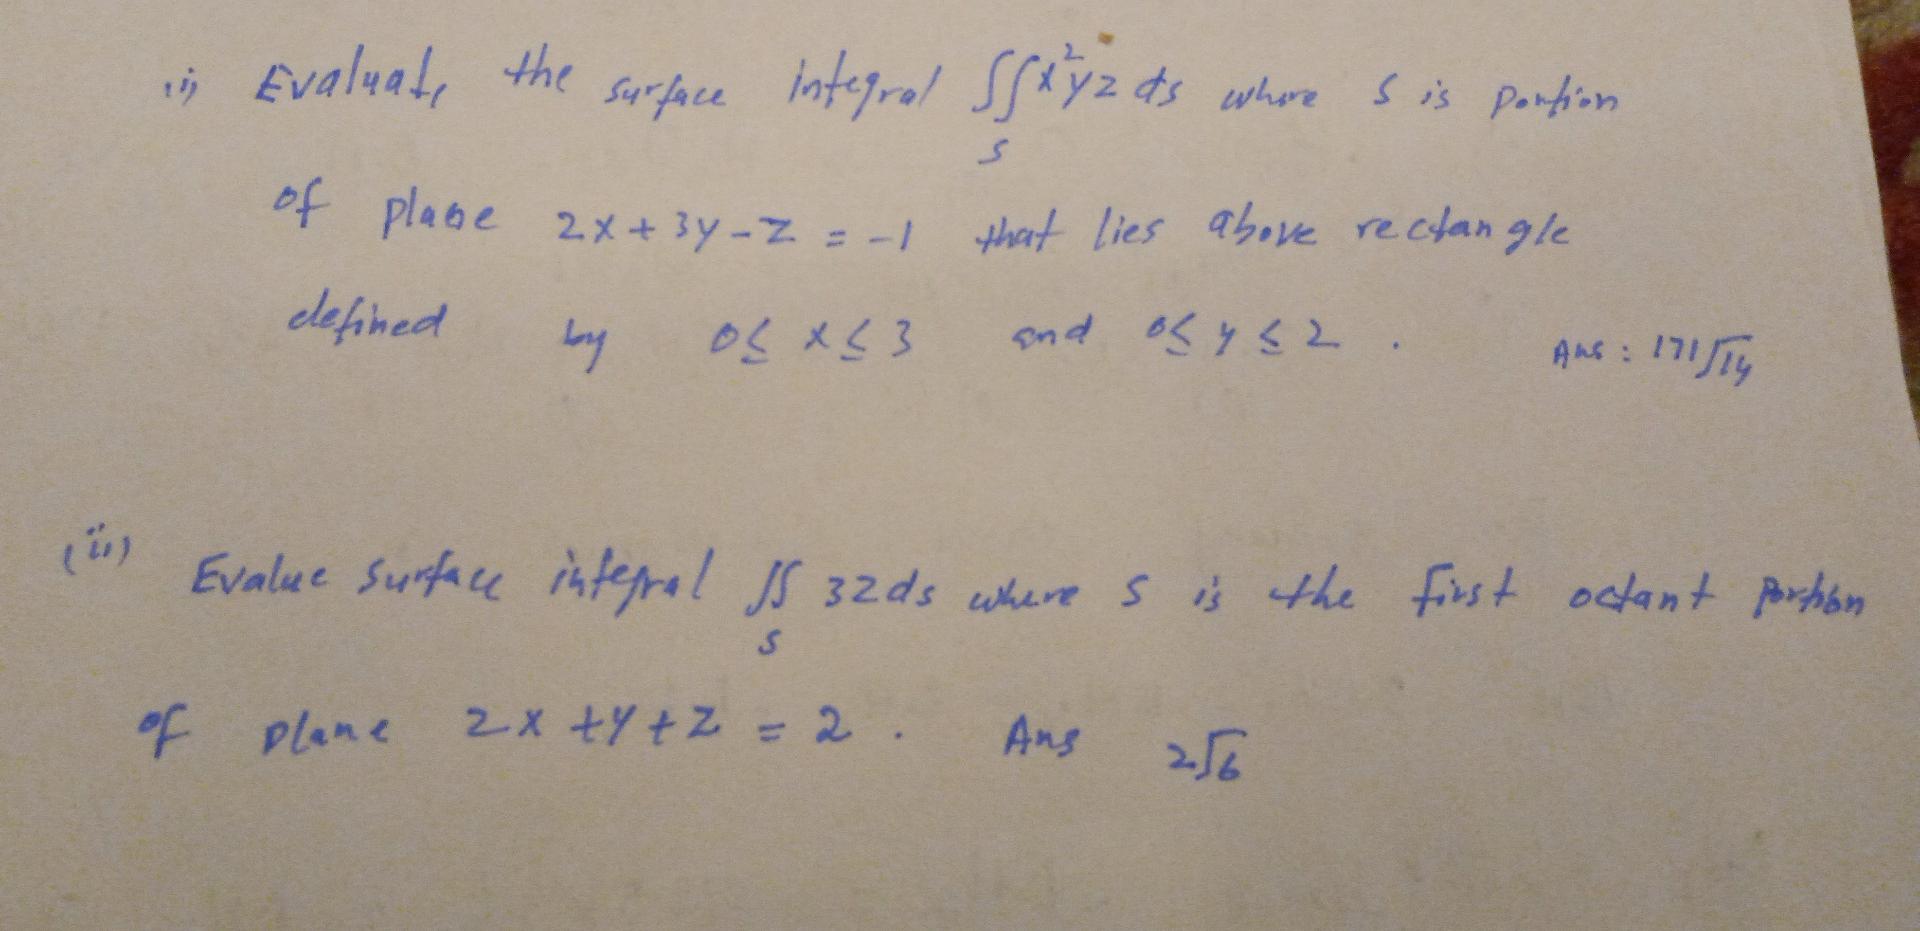 (i) Evaluate the surface integral ∫∫x²yz ds where S is portion
S
of plane 2x + 3y - z = -1 that lies above rectangle
defined by 0≤ x ≤ 3 and 0≤ y ≤ 2 . Ans : 171√14
(ii) Evalue surface integral ∫∫ 3z ds where S is the first octant portion
S
of plane 2x + y + z = 2 . Ans 2√6